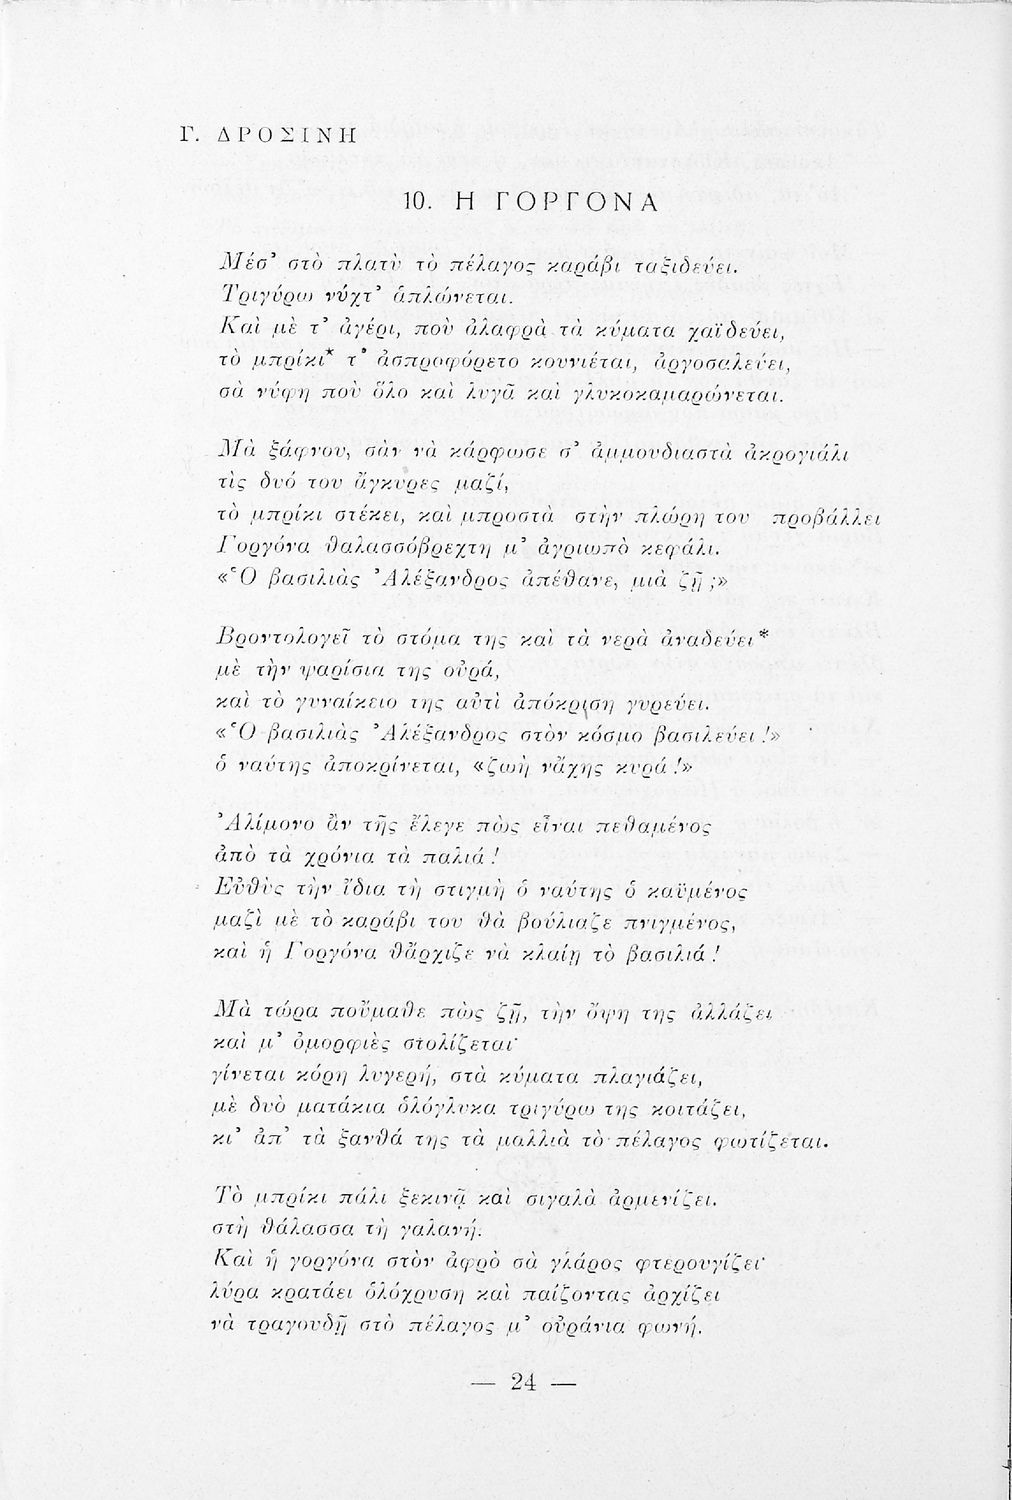 Γ. ΔΡΟΣΙΝΗ
10. Η ΓΟΡΓΟΝΑ
Μέσ᾿ στὸ πλατὺ τὸ πέλαγος καράβι ταξιδεύει.
Τριγύρω νύχτ᾿ ἁπλώνεται.
Καὶ μὲ τ᾿ ἀγέρι, ποὺ ἀλαφρὰ τὰ κύματα χαϊδεύει,
τὸ μπρίκι* τ᾿ ἀσπροφόρετο κουνιέται, ἀργοσαλεύει,
σὰ νύφη ποὺ ὅλο καὶ λυγᾶ καὶ γλυκοκαμαρώνεται.
Μὰ ξάφνου, σὰν νὰ κάρφωσε σ᾿ ἀμμουδιαστὰ ἀκρογιάλι
τὶς δυό του ἄγκυρες μαζί,
τὸ μπρίκι στέκει, καὶ μπροστὰ στὴν πλώρη του προβάλλει
Γοργόνα θαλασσόβρεχτη μ᾿ ἀγριωπὸ κεφάλι.
«Ὁ βασιλιὰς Ἀλέξανδρος ἀπέθανε, μιὰ ζῇ ;»
Βροντολογεῖ τὸ στόμα της καὶ τὰ νερὰ ἀναδεύει*
μὲ τὴν ψαρίσια της οὐρά,
καὶ τὸ γυναίκειο της αὐτὶ ἀπόκριση γυρεύει.
«Ὁ βασιλιὰς Ἀλέξανδρος στὸν κόσμο βασιλεύει !»
ὁ ναύτης ἀποκρίνεται, «ζωὴ νἄχης κυρά !»
Ἀλίμονο ἂν τῆς ἔλεγε πὼς εἶναι πεθαμένος
ἀπὸ τὰ χρόνια τὰ παλιά !
Εὐθὺς τὴν ἴδια τὴ στιγμὴ ὁ ναύτης ὁ καϋμένος
μαζὶ μὲ τὸ καράβι του θὰ βούλιαζε πνιγμένος,
καὶ ἡ Γοργόνα θἄρχιζε νὰ κλαίῃ τὸ βασιλιά !
Μὰ τώρα ποὔμαθε πὼς ζῇ, τὴν ὄψη της ἀλλάζει
καὶ μ᾿ ὀμορφιὲς στολίζεται·
γίνεται κόρη λυγερή, στὰ κύματα πλαγιάζει,
μὲ δυὸ ματάκια ὁλόγλυκα τριγύρω της κοιτάζει,
κι᾿ ἀπ᾿ τὰ ξανθά της τὰ μαλλιὰ τὸ πέλαγος φωτίζεται.
Τὸ μπρίκι πάλι ξεκινᾷ καὶ σιγαλὰ ἀρμενίζει.
στὴ θάλασσα τὴ γαλανή.
Καὶ ἡ γοργόνα στὸν ἀφρὸ σὰ γλάρος φτερουγίζει·
λύρα κρατάει ὁλόχρυση καὶ παίζοντας ἀρχίζει
νὰ τραγουδῇ στὸ πέλαγος μ᾿ οὐράνια φωνή.
— 24 —